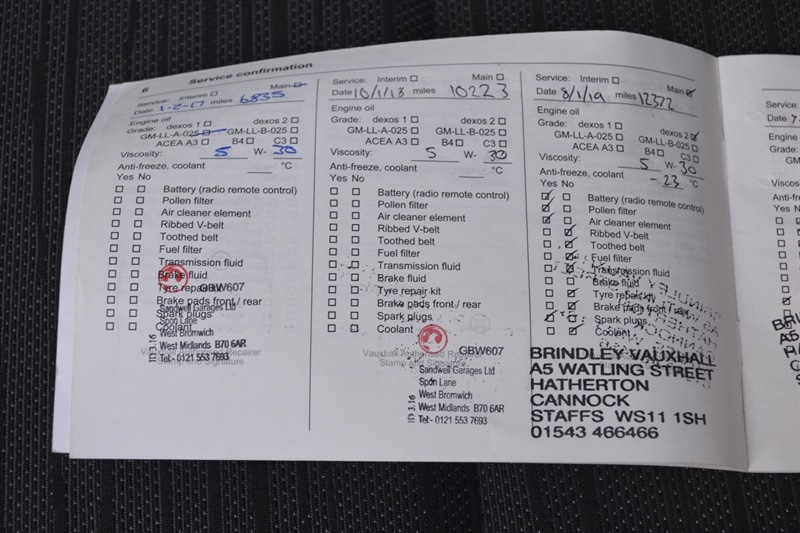 6 Service confirmation
Service: Interim ☐ Main ☑
Date 1-2-17 miles 6835
Engine oil
Grade: dexos 1 ☐ dexos 2 ☐
GM-LL-A-025 ☑ GM-LL-B-025 ☐
ACEA A3 ☐ B4 ☐ C3 ☐
Viscosity: 5 W- 30
Anti-freeze, coolant °C
Yes No
Battery (radio remote control)
Pollen filter
Air cleaner element
Ribbed V-belt
Toothed belt
Fuel filter
Transmission fluid
Brake fluid
Tyre repair kit GBW607
Brake pads front / rear
Sandwell Garages Ltd
Spark plugs
Spon Lane
Coolant
West Bromwich
West Midlands B70 6AR
Tel:- 0121 553 7693
ID 3.16
Service: Interim ☐ Main ☐
Date 10/1/18 miles 10223
Engine oil
Grade: dexos 1 ☐ dexos 2 ☐
GM-LL-A-025 ☐ GM-LL-B-025 ☐
ACEA A3 ☐ B4 ☐ C3 ☐
Viscosity: 5 W- 30
Anti-freeze, coolant °C
Yes No
Battery (radio remote control)
Pollen filter
Air cleaner element
Ribbed V-belt
Toothed belt
Fuel filter
Transmission fluid
Brake fluid
Tyre repair kit
Brake pads front / rear
Spark plugs
Coolant
GBW607
Vauxhall Authorised Repairer
Stamp and Signature
Sandwell Garages Ltd
Spon Lane
West Bromwich
West Midlands B70 6AR
Tel:- 0121 553 7693
ID 3.16
Service: Interim ☐ Main ☑
Date 8/1/19 miles 12372
Engine oil
Grade: dexos 1 ☐ dexos 2 ☑
GM-LL-A-025 ☐ GM-LL-B-025 ☐
ACEA A3 ☐ B4 ☐ C3 ☐
Viscosity: 5 W- 30
Anti-freeze, coolant -23 °C
Yes No
Battery (radio remote control)
Pollen filter
Air cleaner element
Ribbed V-belt
Toothed belt
Fuel filter
Transmission fluid
Brake fluid
Tyre repair kit
Brake pads front / rear
Spark plugs
Coolant
BRINDLEY VAUXHALL
A5 WATLING STREET
HATHERTON
CANNOCK
STAFFS WS11 1SH
01543 466466